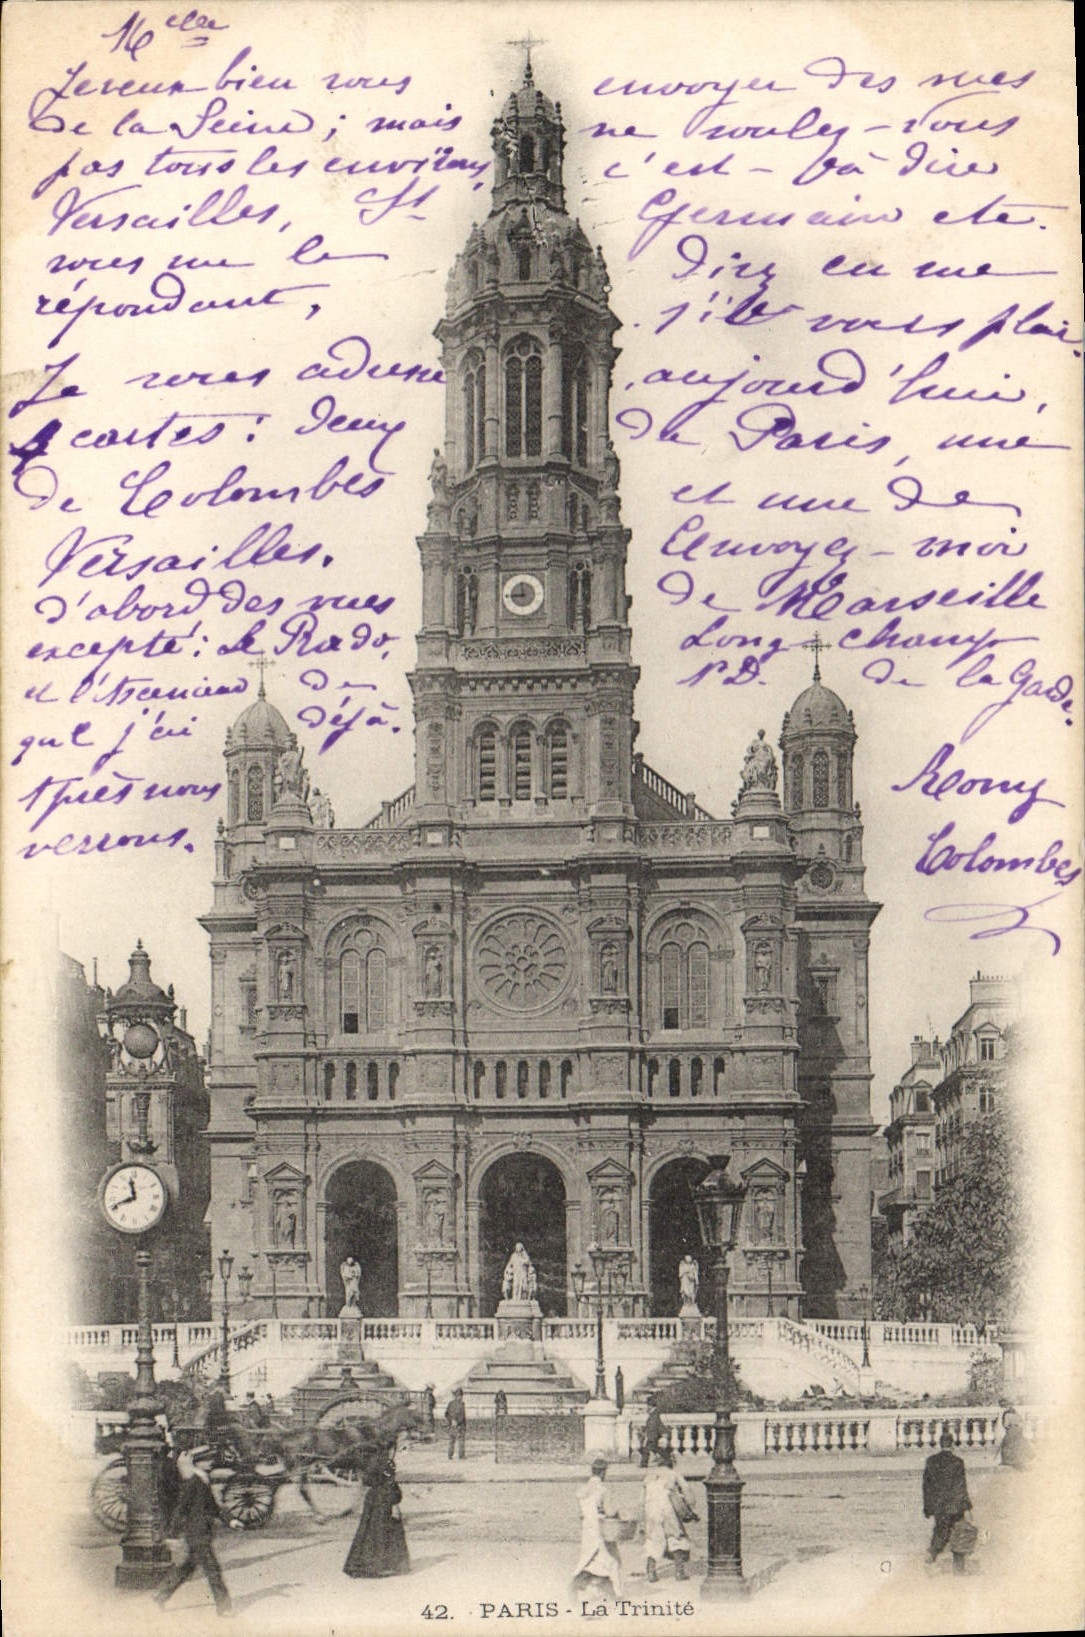 Melle
Je veux bien vous envoyer des vues
de la Seine ; mais ne voulez-vous
pas tous les environs, c'est-à dire
Versailles, St Germain etc.
vous me le direz en me
répondant, s'il vous plait.
Je vous adresse aujourd'hui,
4 cartes : deux de Paris, une
de Colombes et une de
Versailles. Envoyez-moi
d'abord des vues de Marseille
excepté : Le Prado, Longchamp
et l'Ascenseur de N.D. de la Garde.
que j'ai déjà.
Après nous verrons.
Remy
Colombes
42. PARIS - La Trinité